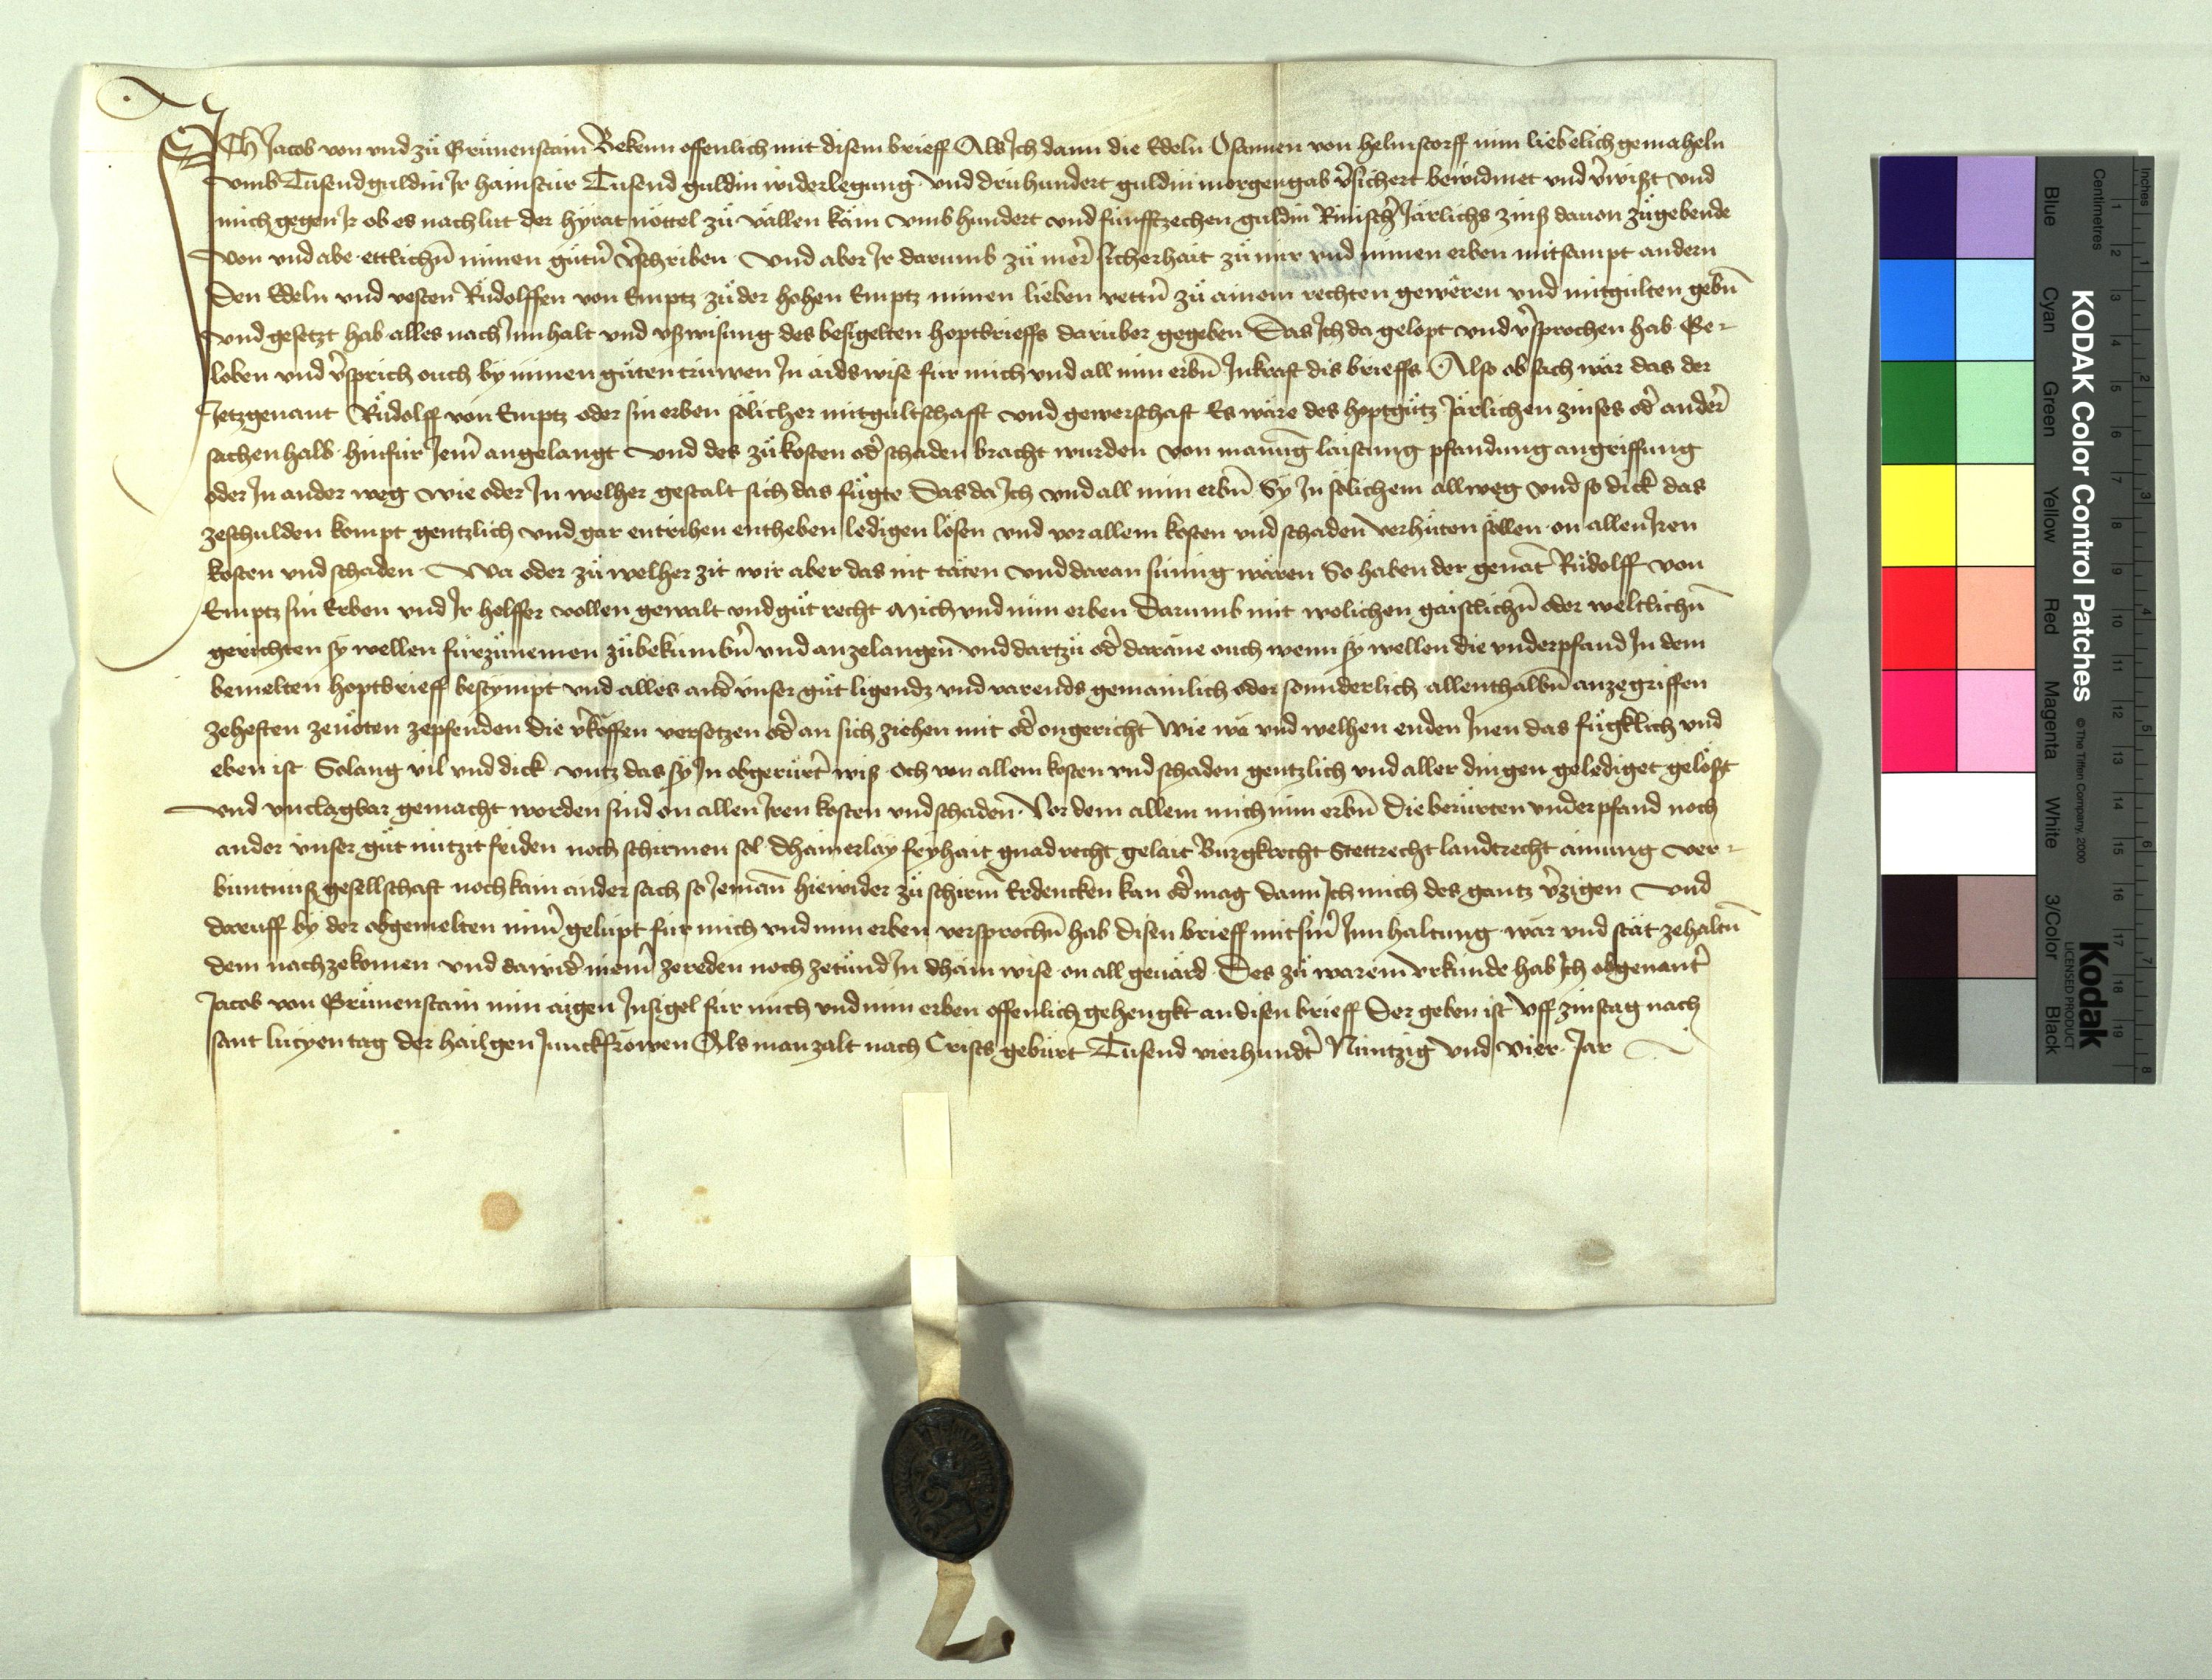 ICh Jacob von vnd zů Grünenstain Bekenn offenlich mit disem brieff Als Ich dann die Edeln Osannen von helmstorff min liebelich gemaheln
vmb Tusend guldin Ir hainstür Tusend guldin widerlegung vnd drühundert guldin morgengab v̉sichert bewidmet vnd v̉wißt vnd
mich gegen Ir ob es nach lut der hyrat nottel zů vällen käm vmb hundert vnd fünfftzechen guldin Rinisch̉ Järlichs zinß dauon zůgebende
von vnd abe ettlichn̄ minen gůtn̉ v̉schriben vnd aber Ir darumb zů mer̉ sicherhait zů mir vnd minen erben mitsampt andern
Den Edeln vnd vesten Růdolffen von Emptz zů der hohen Emptz minen lieben vettn̉ zů ainem rechten geweren vnd mitgülten gebn̄
vnd gesetzt hab alles nach Innhalt vnd vßwisung des besigelten hoptbrieffs darüber gegeben Das Ich da gelopt vnd v̉sprochen hab Ge-
loben vnd v̉sprich ouch by minen gůten trüwen In aids wise für mich vnd all min erbn̄ Inkraft dis brieffs Also ob sach wär das der
Jetzgenant Růdolff von Emptz oder sin erben sölicher mitgültschafft vnd gewerschaft Es wäre des hoptgůtz Järlichen zinses od̉ ander̉
sachenhalb hinfür Jem̉ angelangt vnd des zů kosten od̉ schaden bracht wurden von manūg laistung pfandung angriffung
oder In ander weg wie oder In welher gestalt sich das fůgte Das da Ich vnd all min erbn̄ Sy In sölichem allweg vnd so dick das
zeschulden kompt gentzlich vnd gar entrihen entheben ledigen lösen vnd vor allem kosten vnd schaden verhůten söllen on allen Iren
kosten vnd schaden Wa oder zů welher zit wir aber das nit täten vnd daran sümig wären So haben der genāt Růdolff von
Emptz sin Erben vnd Ir helffer vollen gewalt vnd gůt recht Mich vnd min erben Darumb mit welichen gaistlichn̄ oder weltlichn̄
gerichten sy wellen fürzůnemen zůbekümbn̉ vnd anzelangen̄ vnd dartzů od̉ darāne ouch wenn sy wellen die vnderpfand In dem
bemelten hoptbrieff bestympt vnd alles and̉ vnser gůt ligendz vnd varends gemainlich oder sonnderlich allenthalbn̄ anzegriffen
zehefften zenöten zepfenden die v̉koffen versetzen od̉ an sich ziehen mit od̉ on gericht Wie wa vnd welhen enden Inen das fůgklich vnd
eben ist Solang vil vnd dick vntz das sy In obgerürt̉ wiß och von allem kosten vnd schaden gentzlich vnd aller dingen gelediget gelößt
vnd vnclagbar gemacht worden sind on allen Iren kosten vnd schaden Vor dem allem mich min erbn̄ Die berürten vnderpfand noch
ander vnser gůt nützit friden noch schirmen sol Dhainerlay fryhait gnad recht gelait Burgkrecht Stettrecht landtrecht ainung Ver-
büntnuß gesellschaft noch kain ander sach so Jeman̄ hiewider zů schirm̄ Erdencken kan od̉ mag dann Ich mich des gantz v̉zigen vnd
daruff by der obgemelten min̉ gelüpt für mich vnd min erben versprochn̄ hab disen brieff mit sin̉ Innhaltung wär vnd stät zehaltn̄
dem nachzekomen vnd dawid̉ niem̉ zereden noch zetůnd In dhain wise on all geuärd Des zů warem vrkünde hab Ich obgenant̉
Jacob von Grünenstain min aigen Insigel für mich vnd min erben offenlich gehengkt an disen brieff Der geben ist vff zinstag nach
sant lucyen tag der hailgen Junckfrowen Als man zalt nach Crists gebürt Tusend vierhundt̉ Nüntzig vnd Vier Jar
KODAK Color Control Patches
© The Tiffen Company, 2000
Kodak
LICENSED PRODUCT
Blue Cyan Green Yellow Red Magenta White 3/Color Black
Centimetres
Inches
1 2 3 4 5 6 7 8 9 10 11 12 13 14 15 16 17 18 19
1 2 3 4 5 6 7 8